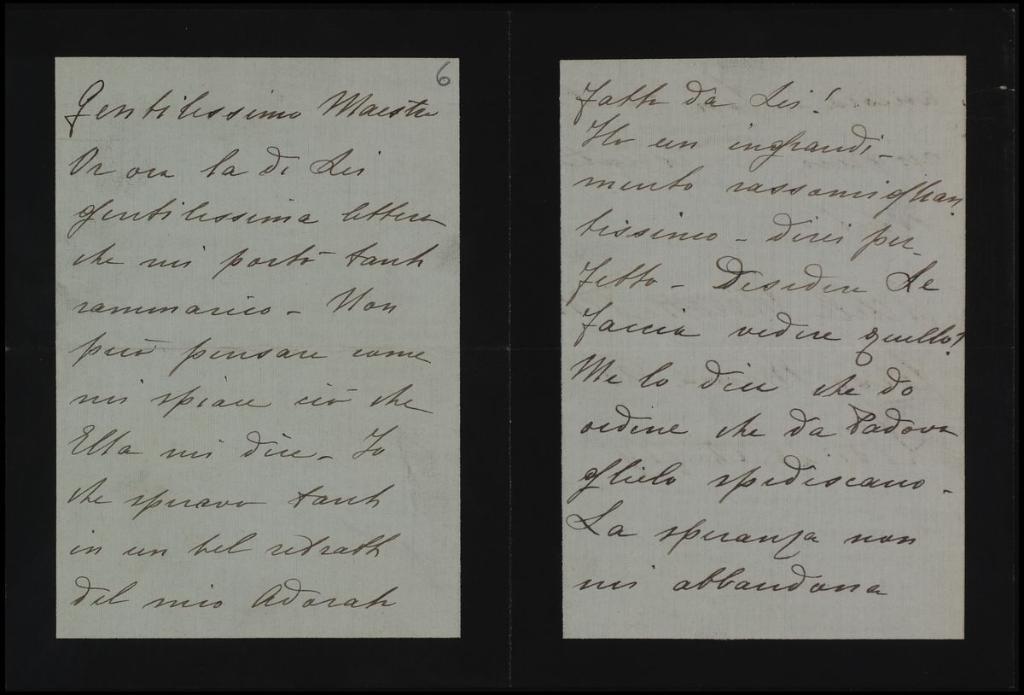 6
Gentilissimo Maestro
Or ora la di Lei
gentilissima lettera
che mi portò tanto
rammarico - Non
può pensare come
mi spiace ciò che
Ella mi dice - Io
che speravo tanto
in un bel ritratto
del mio Adorato
fatto da Lei!
Ho un ingrandi-
mento rassomiglian
tissimo - direi per-
fetto - Desidera Le
faccia vedere quello?
Me lo dica che do
ordine che da Padova
glielo spediscano -
La speranza non
mi abbandona